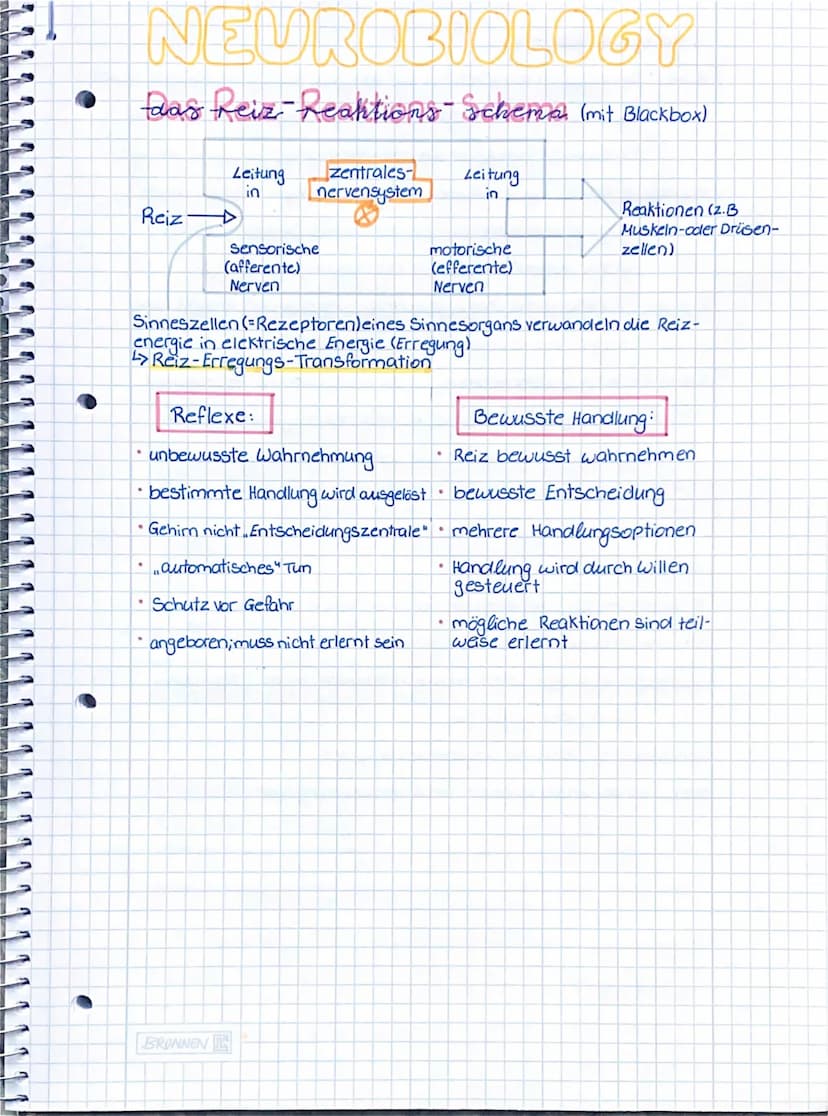 NEUROBIOLOGY
Das Reiz-Reaktions-Schema (mit Blackbox)
Leitung in
zentrales-
nervensystem
Leitung in
Reiz
Reaktionen (z.B
Muskeln-oder Drüsen-
zellen)
sensorische
(afferente)
Nerven
motorische
(efferente)
Nerven
Sinneszellen (=Rezeptoren) eines Sinnesorgans verwandeln die Reiz-
energie in elektrische Energie (Erregung)
↳ Reiz-Erregungs-Transformation
Reflexe:
• unbewusste Wahrnehmung
• bestimmte Handlung wird ausgelöst
• Gehirn nicht „Entscheidungszentrale"
• „automatisches" Tun
• Schutz vor Gefahr
• angeboren; muss nicht erlernt sein
Bewusste Handlung:
• Reiz bewusst wahrnehmen
• bewusste Entscheidung
• mehrere Handlungsoptionen
• Handlung wird durch Willen
gesteuert
• mögliche Reaktionen sind teil-
weise erlernt
BRUNNEN